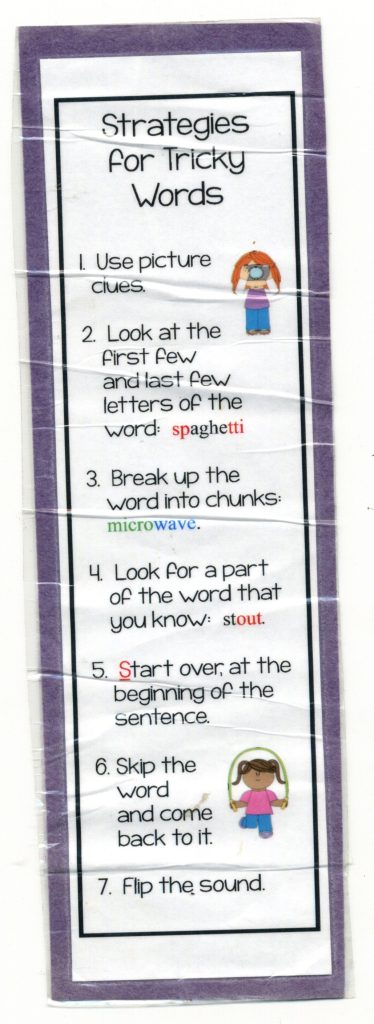 Strategies
for Tricky
Words
1. Use picture
clues.
2. Look at the
first few
and last few
letters of the
word: spaghetti
3. Break up the
word into chunks:
microwave.
4. Look for a part
of the word that
you know: stout.
5. Start over, at the
beginning of the
sentence.
6. Skip the
word
and come
back to it.
7. Flip the sound.